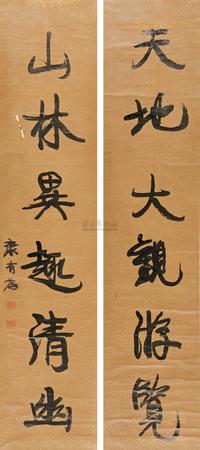 天地大觀游覽
山林異趣清幽
康有為